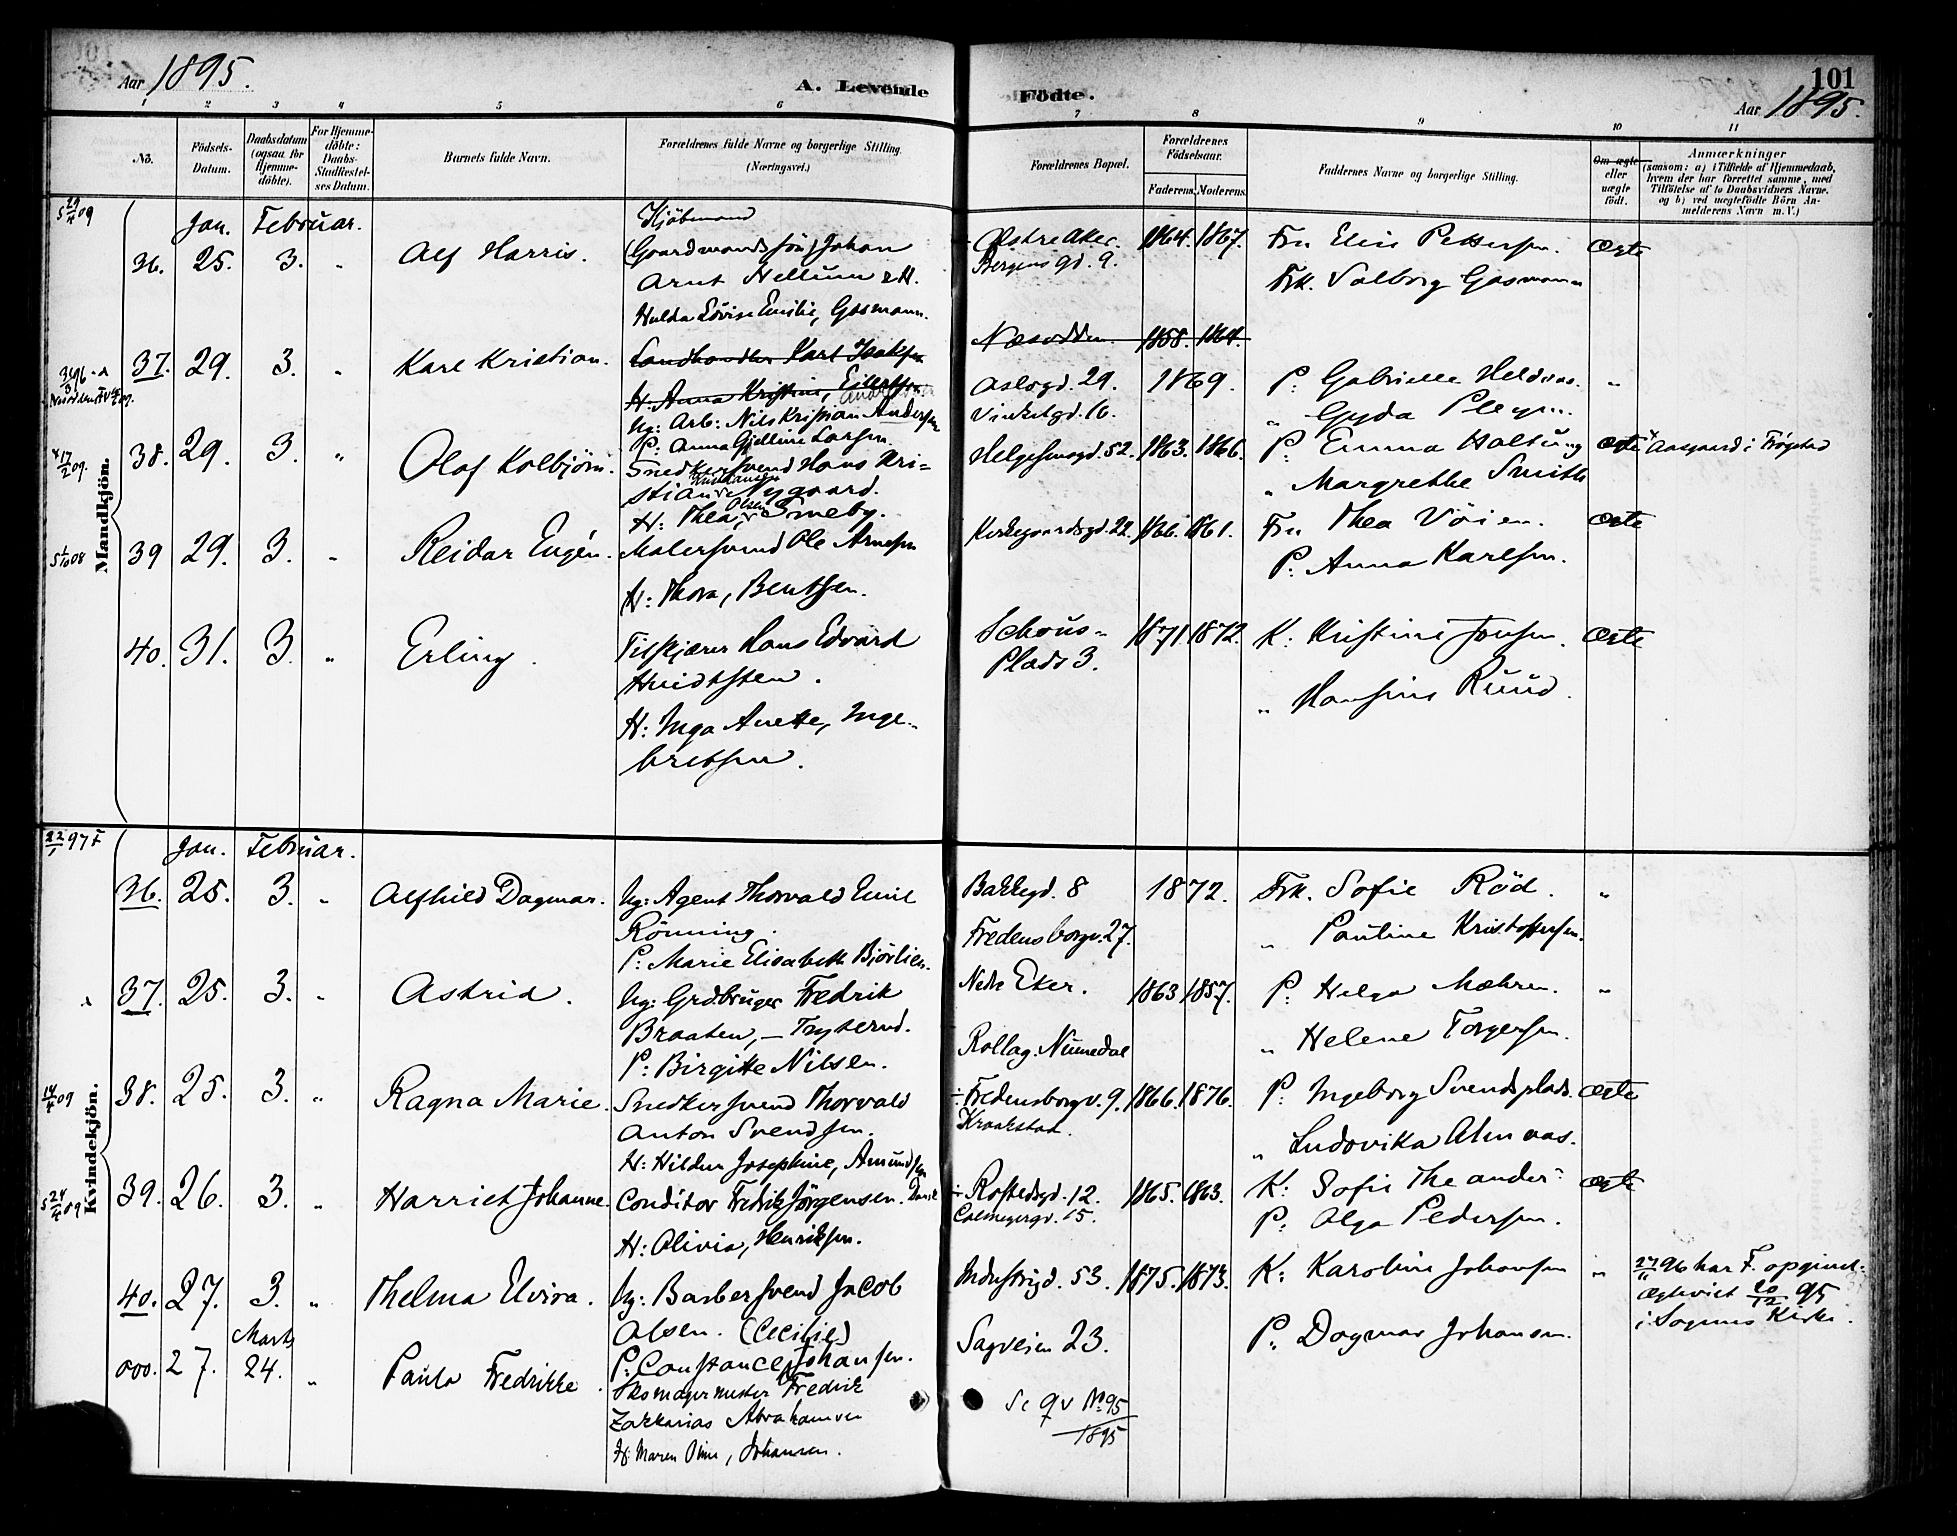 Aar 1895.
A. Levende Födte.
101
Aar 1895.
1 2 3 4 5 6 7 8 9 10 11
No.
Födsels-Datum.
Daabsdatum (ogsaa for Hjemme-döbte).
For Hjemme-döbte: Daabs-Stadfæstel-ses Datum.
Barnets fulde Navn.
Forældrenes fulde Navne og borgerlige Stilling.
(Næringsvei.)
Forældrenes Bopæl.
Forældrenes Födselsaar.
Faderens. Moderens.
Faddernes Navne og borgerlige Stilling.
Om ægte eller uægte født.
Anmærkninger
(saasom: a) i Tilfælde af Hjemmedaab,
hvem der har forrettet samme, med
Tilföielse af to Daabsvidners Navne.
og b) ved uægtefödte Börn An-
melderens Navn m. V.)
Mandkjön.
Jan. Februar.
36. 25. 3. „ Alf Harris.
Kjöbmand
(Gaardmandssön) Johan
Arnt Hellum & H.
Hulda Lovise Emilie, Gosmann.
Østre Aker. 1864. 1867.
Bergens gd. 9.
Fru Elise Pettersen. Ægte
Frk. Valborg Gosmann
37. 29. 3. „ Karl Kristian.
Landhandler Karl Isaksen
H: Anna Kristine, Eilertsen
Ug: Arb: Nils Kristian Andersen
P: Anna Gjelline Larsen.
Næsodden. 1858. 1864.
Oslogd. 29. 1869.
Vinkelgd. 16.
P: Gabrielle Heldaas. „
„ Gyda Pleym.
38. 29. 3. „ Olaf Kolbjörn.
Snedkersvend Hans Kri-
stian Kristiansen Nygaard.
H: Thea, Olsen Smeby.
Helgesensgd. 52. 1863. 1866.
P: Emma Haltung Ægte Aasgaard i Frogstad
„ Margrethe Smith
39 29. 3. „ Reidar Eugén.
Malersvend Ole Arnesen
H: Thora, Bentsen.
Kirkegaardsgd. 22. 1866. 1861.
Fru Thea Vöien. Ægte
P: Anna Karlsen.
40. 31. 3. „ Erling.
Tilskjærer Hans Edvard
Hvidtsten.
H: Inga Anette, Inge-
bretsen.
Schous-
Plads 3.
1871 1872.
K: Kristine Jensen. Ægte
„ Hansine Ruud.
Kvindekjön.
Jan. Februar.
36. 25. 3. „ Alfhild Dagmar.
Ug: Agent Thorvald Emil
Rönning.
P: Marie Elisabeth Björlien.
Bakkegd. 8 1872.
Fredensborgv. 27.
Frk. Sofie Röd. „
„ Pauline Kristoffersen.
37. 25. 3. „ Astrid.
Ug: Grdbruger Fredrik
Braaten, – Tryterud.
P: Birgitte Nilsen.
Nedre Eker. 1863 1857.
Rollag. Numedal
P: Helga Mæhren. „
„ Helene Torgersen.
38. 25. 3. „ Ragna Marie.
Snedkersvend Thorvald
Anton Svendsen.
H: Hilda Josephine, Amundsen
÷ Fredensborgv. 9. 1866. 1876.
Kraakstad.
P: Ingeborg Svendsplads. Ægte
„ Ludovika Almaas.
39. 26. 3. „ Harriet Johanne.
Conditor Fredrik Jörgensen. Dansk
H: Olivia, Henriksen.
÷ Rostedsgd. 12. 1865. 1863.
Calmeyergd. 15.
K: Sofie Theander Ægte
P: Olga Pedersen.
40. 27. 3. „ Thelma Elvira.
Ug: Barbersvend Jacob
Olsen. (Cecilie)
P: Constance Johansen.
Industrigd. 53. 1875. 1873.
Sagveien 23.
K: Karoline Johansen „
P: Dagmar Johansen.
27/11 96 har F. opgivet:
Ægteviet 20/12 95
i Sognets Kirke.
Marts
000. 27. 24. „ Paula Fredrikke.
Skomagermester Fredrik
Zakkarias Abrahamsen
H: Maren Oline, Johansen.
Se qv No 95
1895